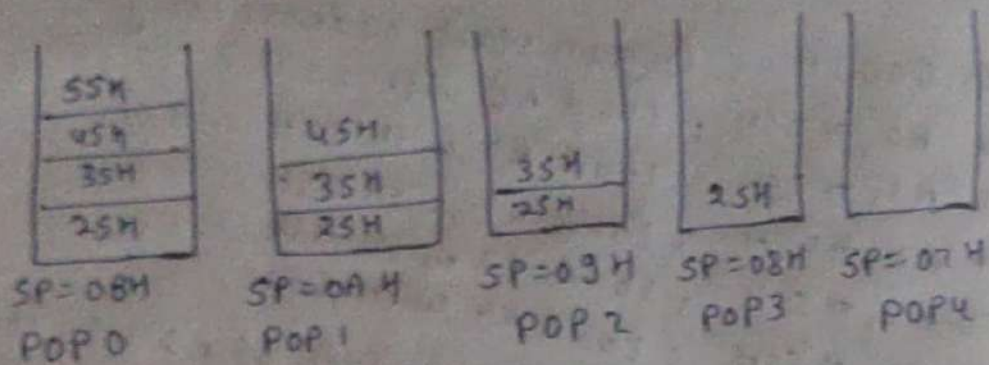 55H
45H
35H
25H
SP=0BH
POP 0
45H
35H
25H
SP=0AH
POP 1
35H
25H
SP=09H
POP 2
25H
SP=08H
POP3
SP=07H
POP4